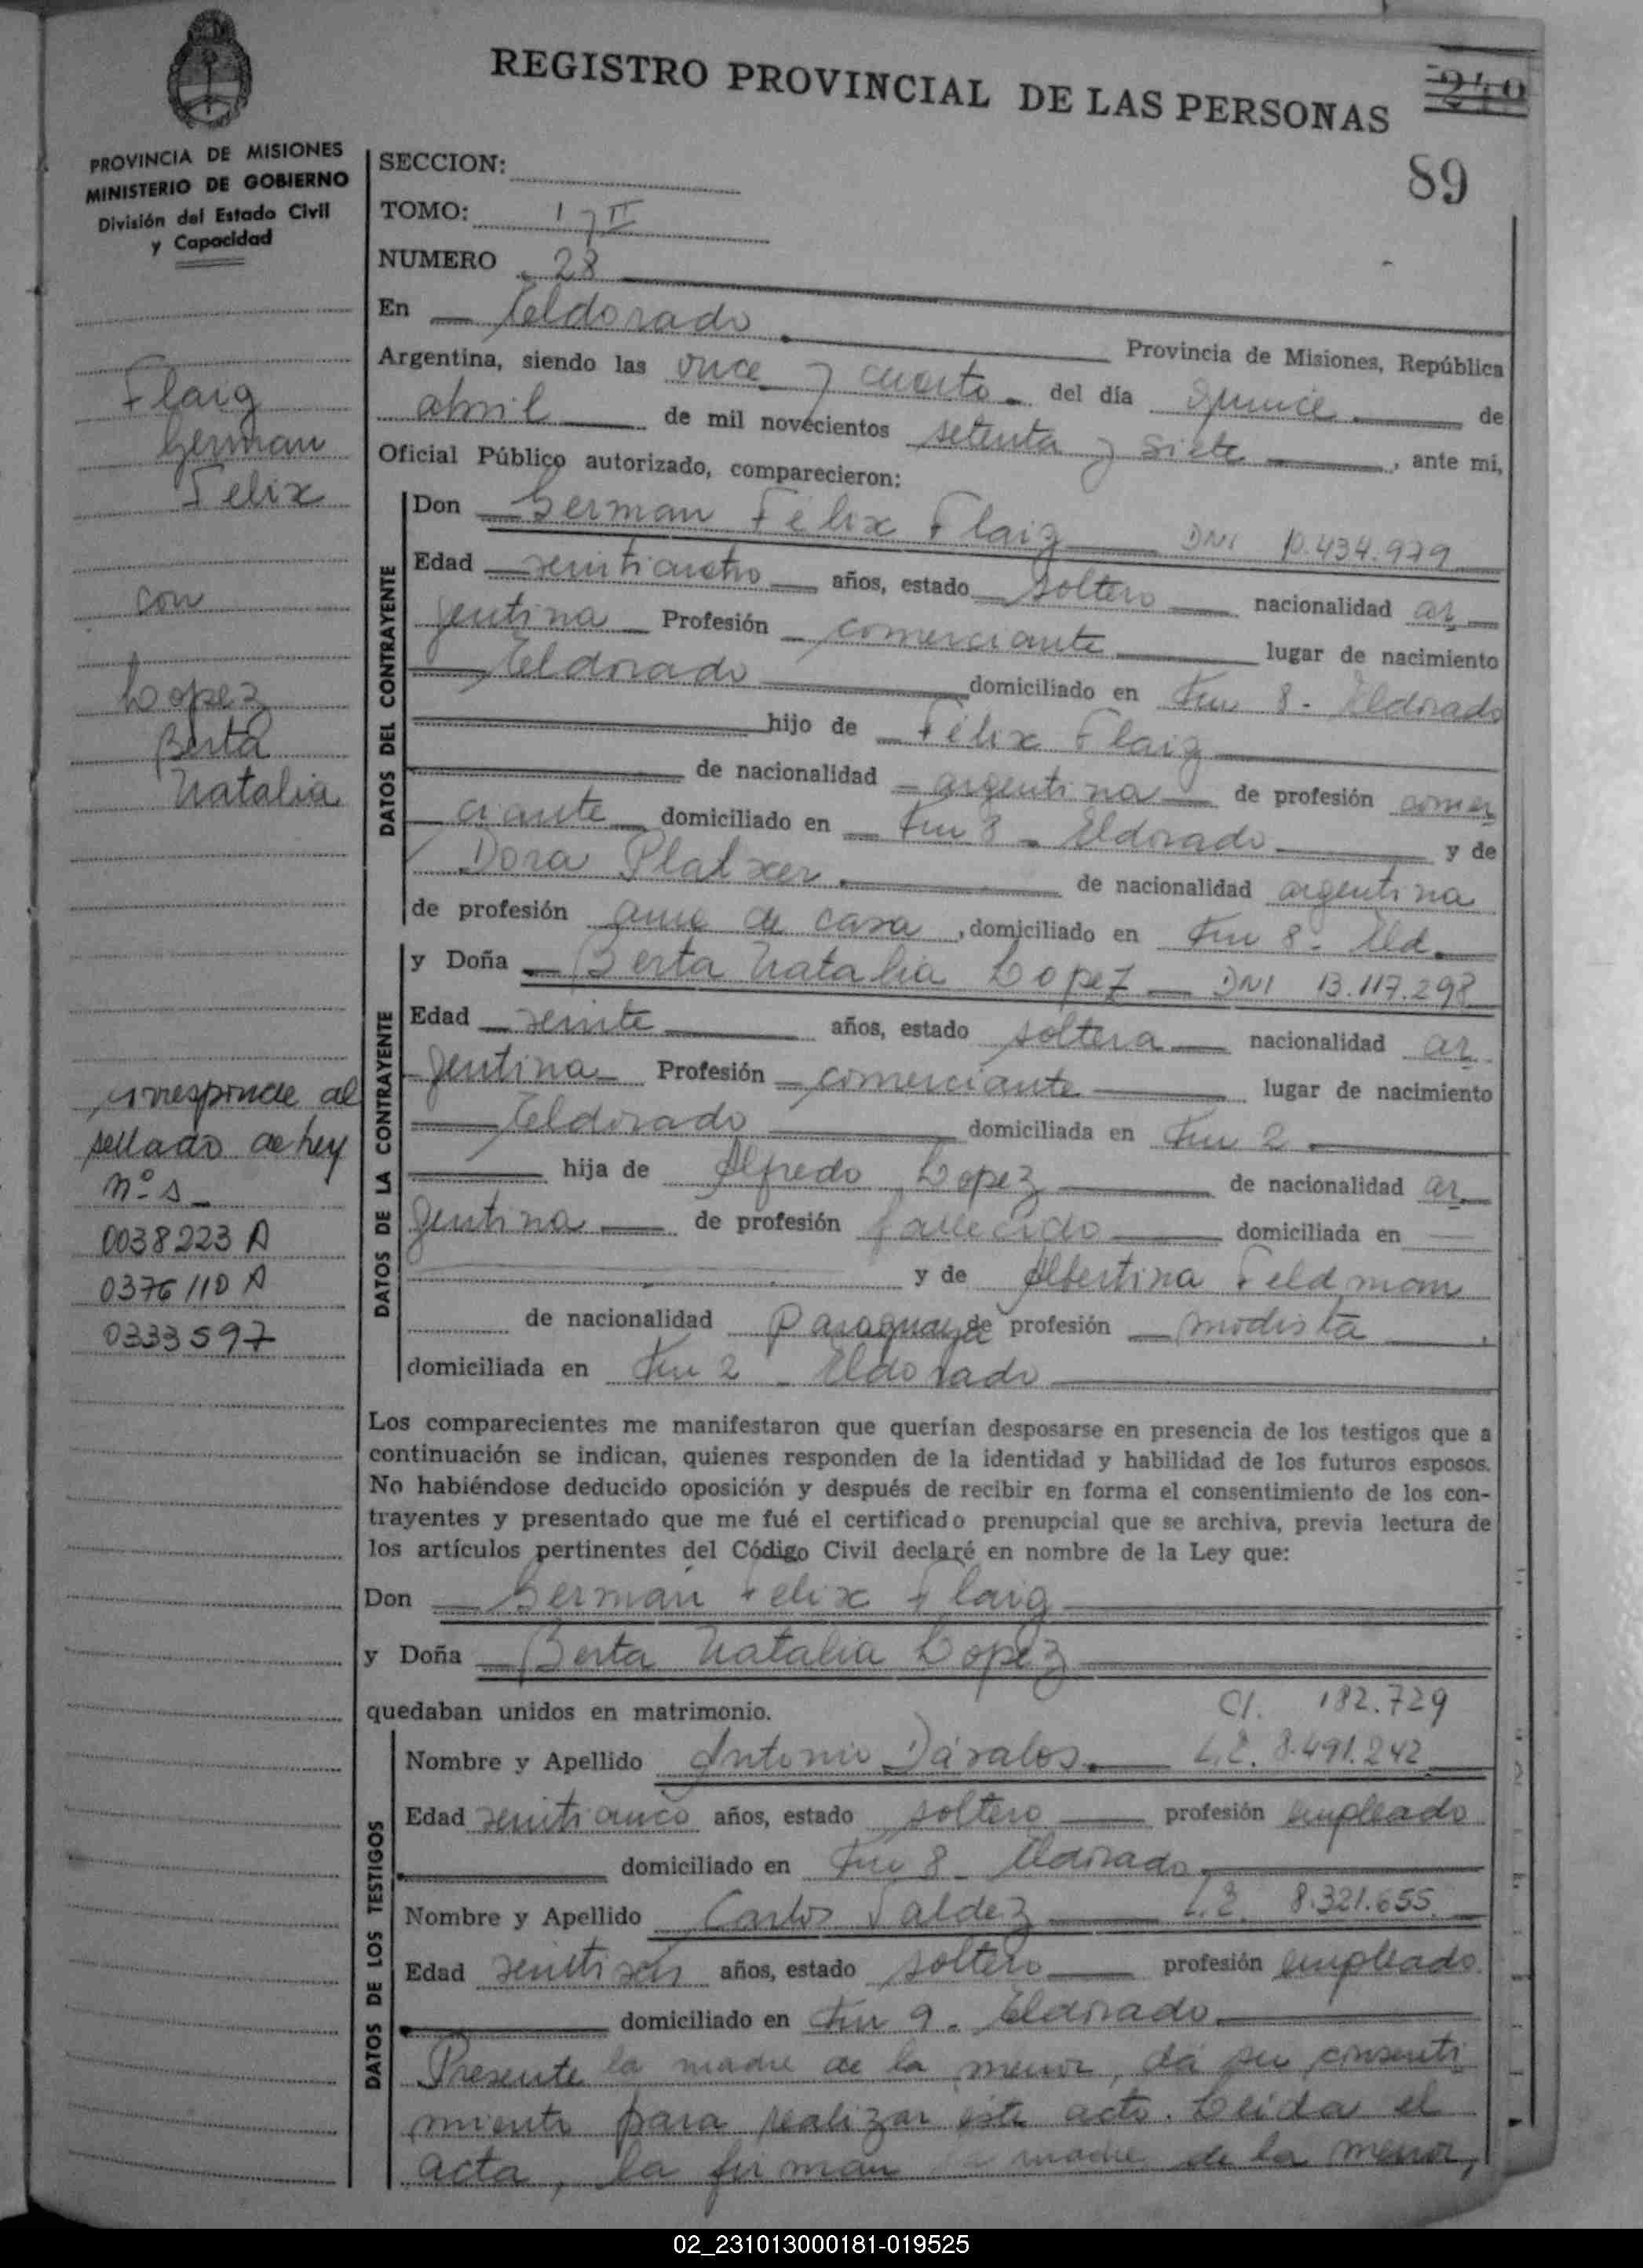 REGISTRO PROVINCIAL DE LAS PERSONAS
240
89
PROVINCIA DE MISIONES
MINISTERIO DE GOBIERNO
División del Estado Civil
y Capacidad
SECCION:
TOMO: 1 y II
NUMERO 28
En Eldorado Provincia de Misiones, República
Argentina, siendo las once y cuarto del día quince de
abril de mil novecientos setenta y siete, ante mi,
Oficial Público autorizado, comparecieron:
Flaig
German
Felix
con
Lopez
Berta
Natalia
corresponde al
sellado de ley
nº s
0038223 A
0376110 A
0333597
DATOS DEL CONTRAYENTE
Don German Félix Flaig DNI 10.434.979
Edad veinticuatro años, estado soltero nacionalidad ar
gentina Profesión comerciante lugar de nacimiento
Eldorado domiciliado en Km 8 - Eldorado
hijo de Félix Flaig
de nacionalidad argentina de profesión comer
ciante domiciliado en Km 8 - Eldorado y de
Dora Platxer de nacionalidad argentina
de profesión ama de casa, domiciliado en Km 8 - Eld.
DATOS DE LA CONTRAYENTE
y Doña Berta Natalia Lopez DNI 13.117.298
Edad veinte años, estado soltera nacionalidad ar
gentina Profesión comerciante lugar de nacimiento
Eldorado domiciliada en Km 2
hija de Alfredo Lopez de nacionalidad ar
gentina de profesión fallecido domiciliada en
y de Albertina Feldman
de nacionalidad Paraguaya de profesión modista
domiciliada en Km 2 - Eldorado
Los comparecientes me manifestaron que querían desposarse en presencia de los testigos que a
continuación se indican, quienes responden de la identidad y habilidad de los futuros esposos.
No habiéndose deducido oposición y después de recibir en forma el consentimiento de los con-
trayentes y presentado que me fué el certificado prenupcial que se archiva, previa lectura de
los artículos pertinentes del Código Civil declaré en nombre de la Ley que:
Don German Felix Flaig
y Doña Berta Natalia Lopez
quedaban unidos en matrimonio. CI. 182.729
DATOS DE LOS TESTIGOS
Nombre y Apellido Antonio Dávalos L.E. 8.491.242
Edad veinticinco años, estado soltero profesión empleado
domiciliado en Km 8 - Eldorado
Nombre y Apellido Carlos Valdez L.E. 8.321.655
Edad veintiseis años, estado soltero profesión empleado
domiciliado en Km 9 - Eldorado
Presente la madre de la menor, dá su consenti
miento para realizar este acto. Leida el
acta, la firman la madre de la menor,
02_231013000181-019525